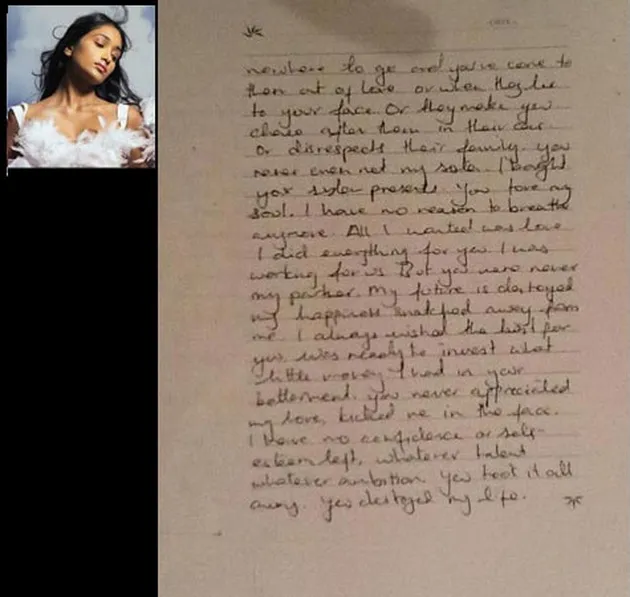 nowhere to go and you've come to
them out of love or when they lie
to your face. Or they make you
chase after them in their car
Or disrespects their family. you
never even met my sister. I bought
your sister presents. You tore my
soul. I have no reason to breathe
anymore. All I wanted was love
I did everything for you. I was
working for us. But you were never
my partner. My future is destroyed
my happiness snatched away from
me. I always wished the best for
you, was ready to invest what
little money I had in your
betterment. you never appreciated
my love, kicked me in the face.
I have no confidence or self-
esteem left, whatever talent
whatever ambition you took it all
away. You destroyed my life.